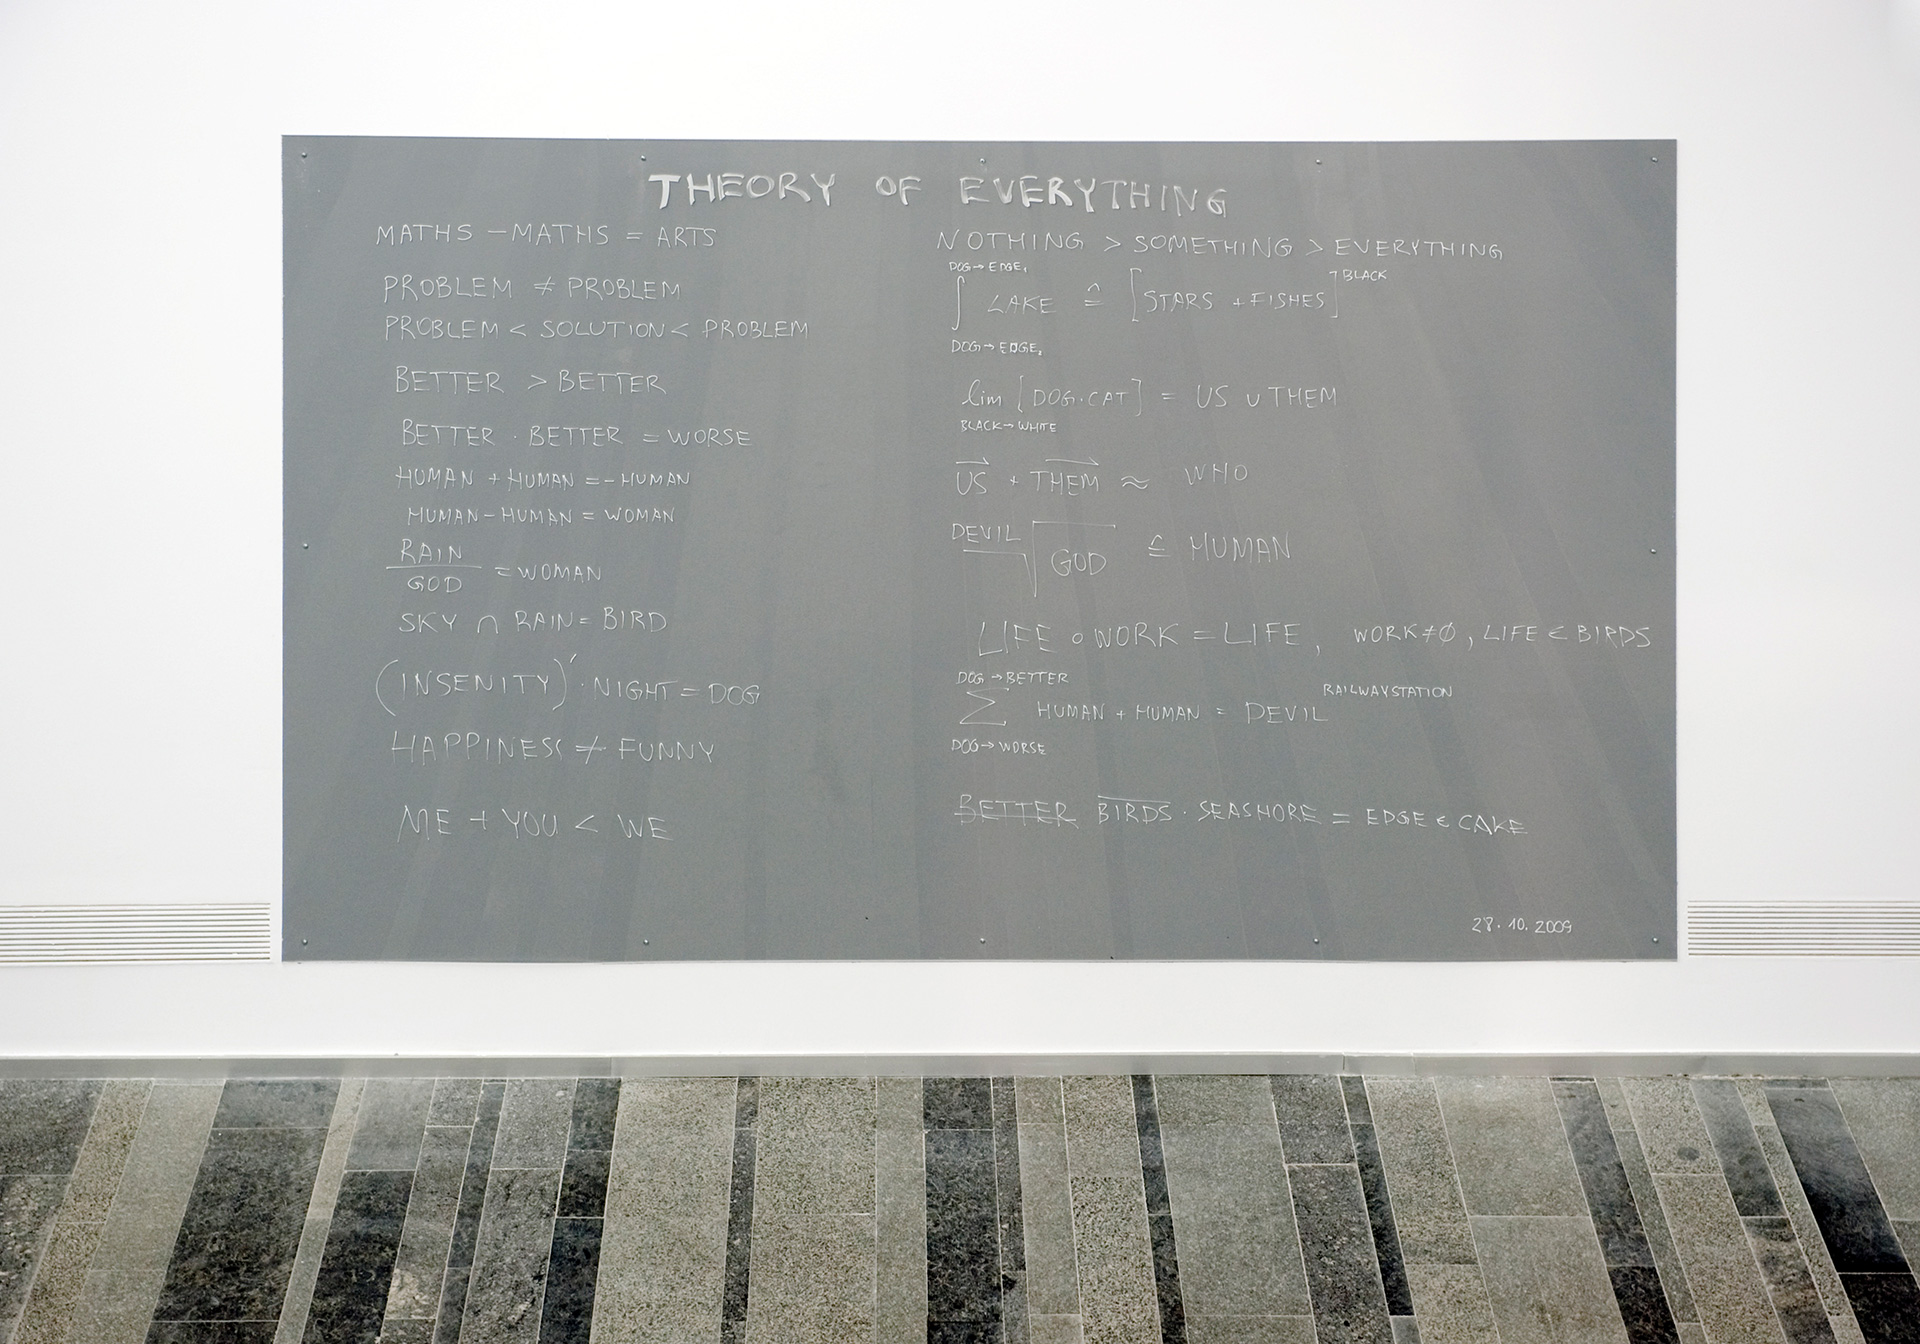 THEORY OF EVERYTHING
MATHS - MATHS = ARTS
PROBLEM ≠ PROBLEM
PROBLEM < SOLUTION < PROBLEM
BETTER > BETTER
BETTER · BETTER = WORSE
HUMAN + HUMAN = - HUMAN
HUMAN - HUMAN = WOMAN
RAIN
GOD
= WOMAN
SKY ∩ RAIN = BIRD
(INSENITY)' · NIGHT = DOG
HAPPINESS ≠ FUNNY
ME + YOU < WE
NOTHING > SOMETHING > EVERYTHING
DOG → EDGE₁
∫ LAKE ≙ [STARS + FISHES]^¬BLACK
DOG → EDGE₂
lim [DOG · CAT] = US ∪ THEM
BLACK → WHITE
US + THEM ≈ WHO
DEVIL √GOD ≙ HUMAN
LIFE ∘ WORK = LIFE, WORK ≠ ∅, LIFE ∈ BIRDS
DOG → BETTER
∑ HUMAN + HUMAN = DEVIL^RAILWAYSTATION
DOG → WORSE
BETTER BIRDS · SEASHORE = EDGE ∈ CAKE
28.10.2009